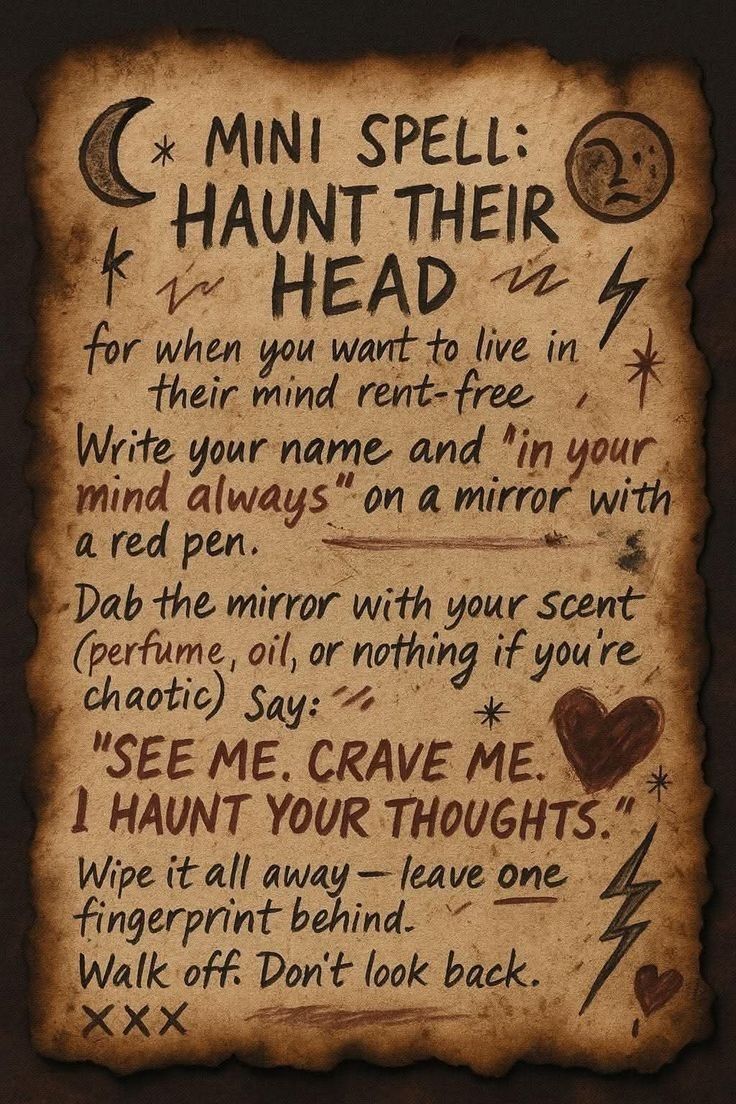 MINI SPELL:
HAUNT THEIR
HEAD
for when you want to live in
their mind rent-free
Write your name and "in your
mind always" on a mirror with
a red pen.
Dab the mirror with your scent
(perfume, oil, or nothing if you're
chaotic) Say:
"SEE ME. CRAVE ME.
I HAUNT YOUR THOUGHTS."
Wipe it all away — leave one
fingerprint behind.
Walk off. Don't look back.
XXX